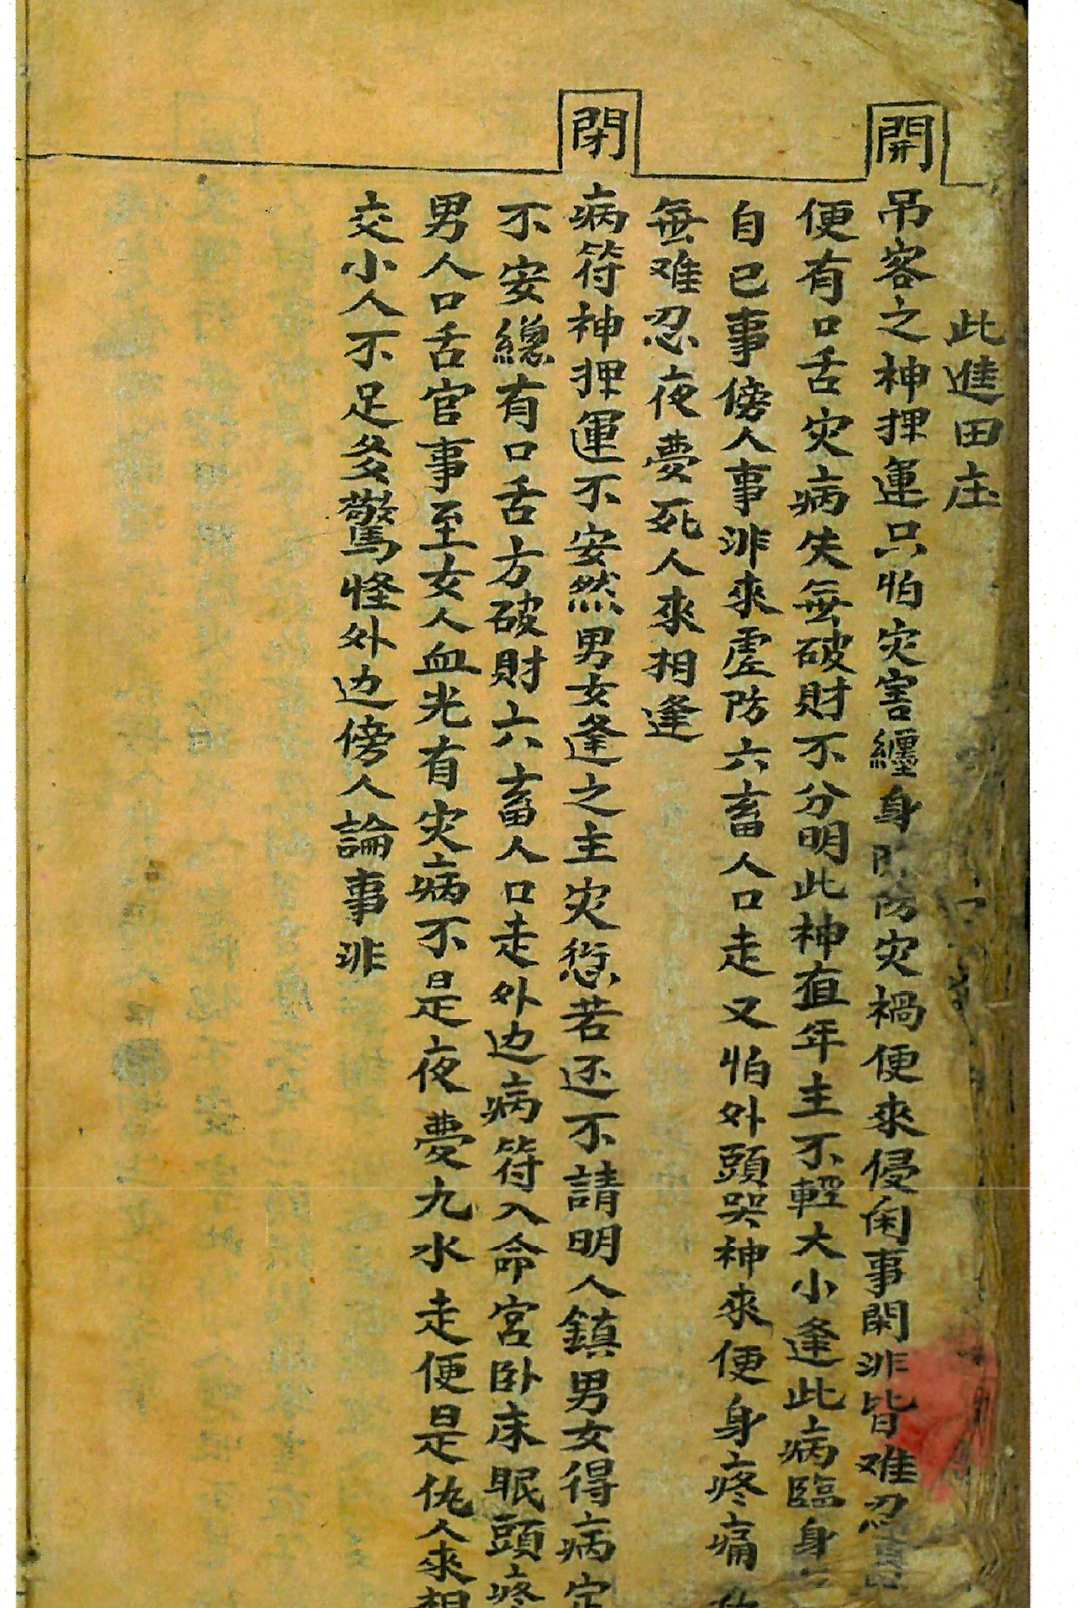 此進田庄
開
吊客之神押運只怕灾害纏身防灾禍便來侵閑事閑非皆难忍
便有口舌灾病失無破財不分明此神值年主不輕大小逢此病臨身
自已事傍人事非來虚防六畜人口走又怕外頭哭神來便身疼痛
無难忍夜夢死人來相逢
閉
病符神押運不安然男女逢之主灾愆若还不請明人鎮男女得病定
不安總有口舌方破財六畜人口走外边病符入命宮卧床眠頭疼
男人口舌官事至女人血光有灾病不是夜夢九水走便是仇人來相
交小人不足多驚怪外边傍人論事非